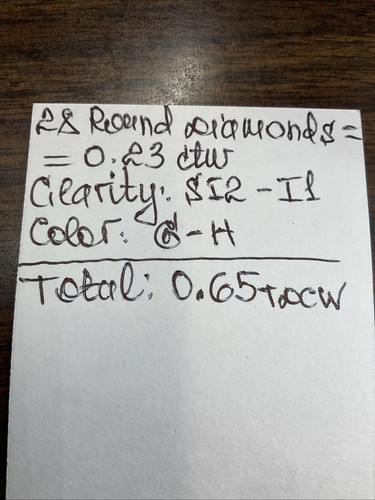 28 Round Diamonds =
= 0.23 ctw
Clarity: SI2 - I1
Color: G - H
Total: 0.65